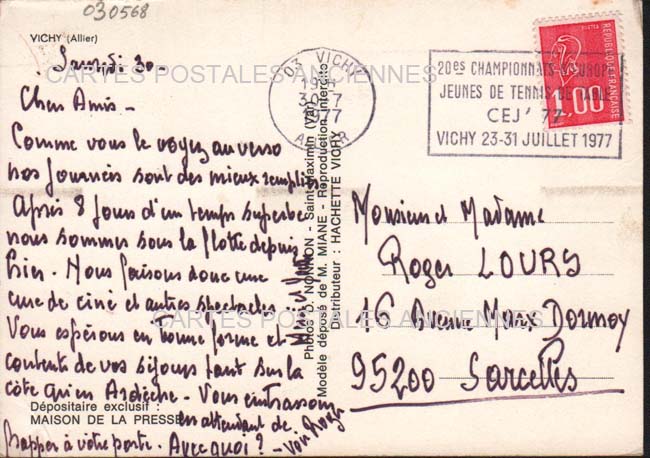 030568
VICHY (Allier)
Samedi 30
Chers Amis -
Comme vous le voyez au verso
nos journées sont des mieux remplies
Après 8 jours d'un temps superbe
nous sommes sous la flotte depuis
hier. Nous faisons donc une
cure de ciné et autres spectacles.
Vous espérons en bonne forme et
contents de vos séjours tant sur la
côte qu'en Ardèche. Vous embrassons
en attendant de
frapper à votre porte. Avec quoi ? -
Dépositaire exclusif :
MAISON DE LA PRESSE
03 VICHY
30-7
1977
ALLIER
20es CHAMPIONNATS D'EUROPE
JEUNES DE TENNIS DE TABLE
CEJ' 77
VICHY 23-31 JUILLET 1977
REPUBLIQUE FRANÇAISE
POSTES
1,00
Photos O. NONNON - Saint-Maximin (Var)
Modèle déposé de M. MIANE - Reproduction interdite
Distributeur : HACHETTE VICHY
Monsieur et Madame
Roger LOURS
16 Avenue Marx Dormoy
95200 Sarcelles
CARTES POSTALES ANCIENNES
CARTES POSTALES ANCIENNES